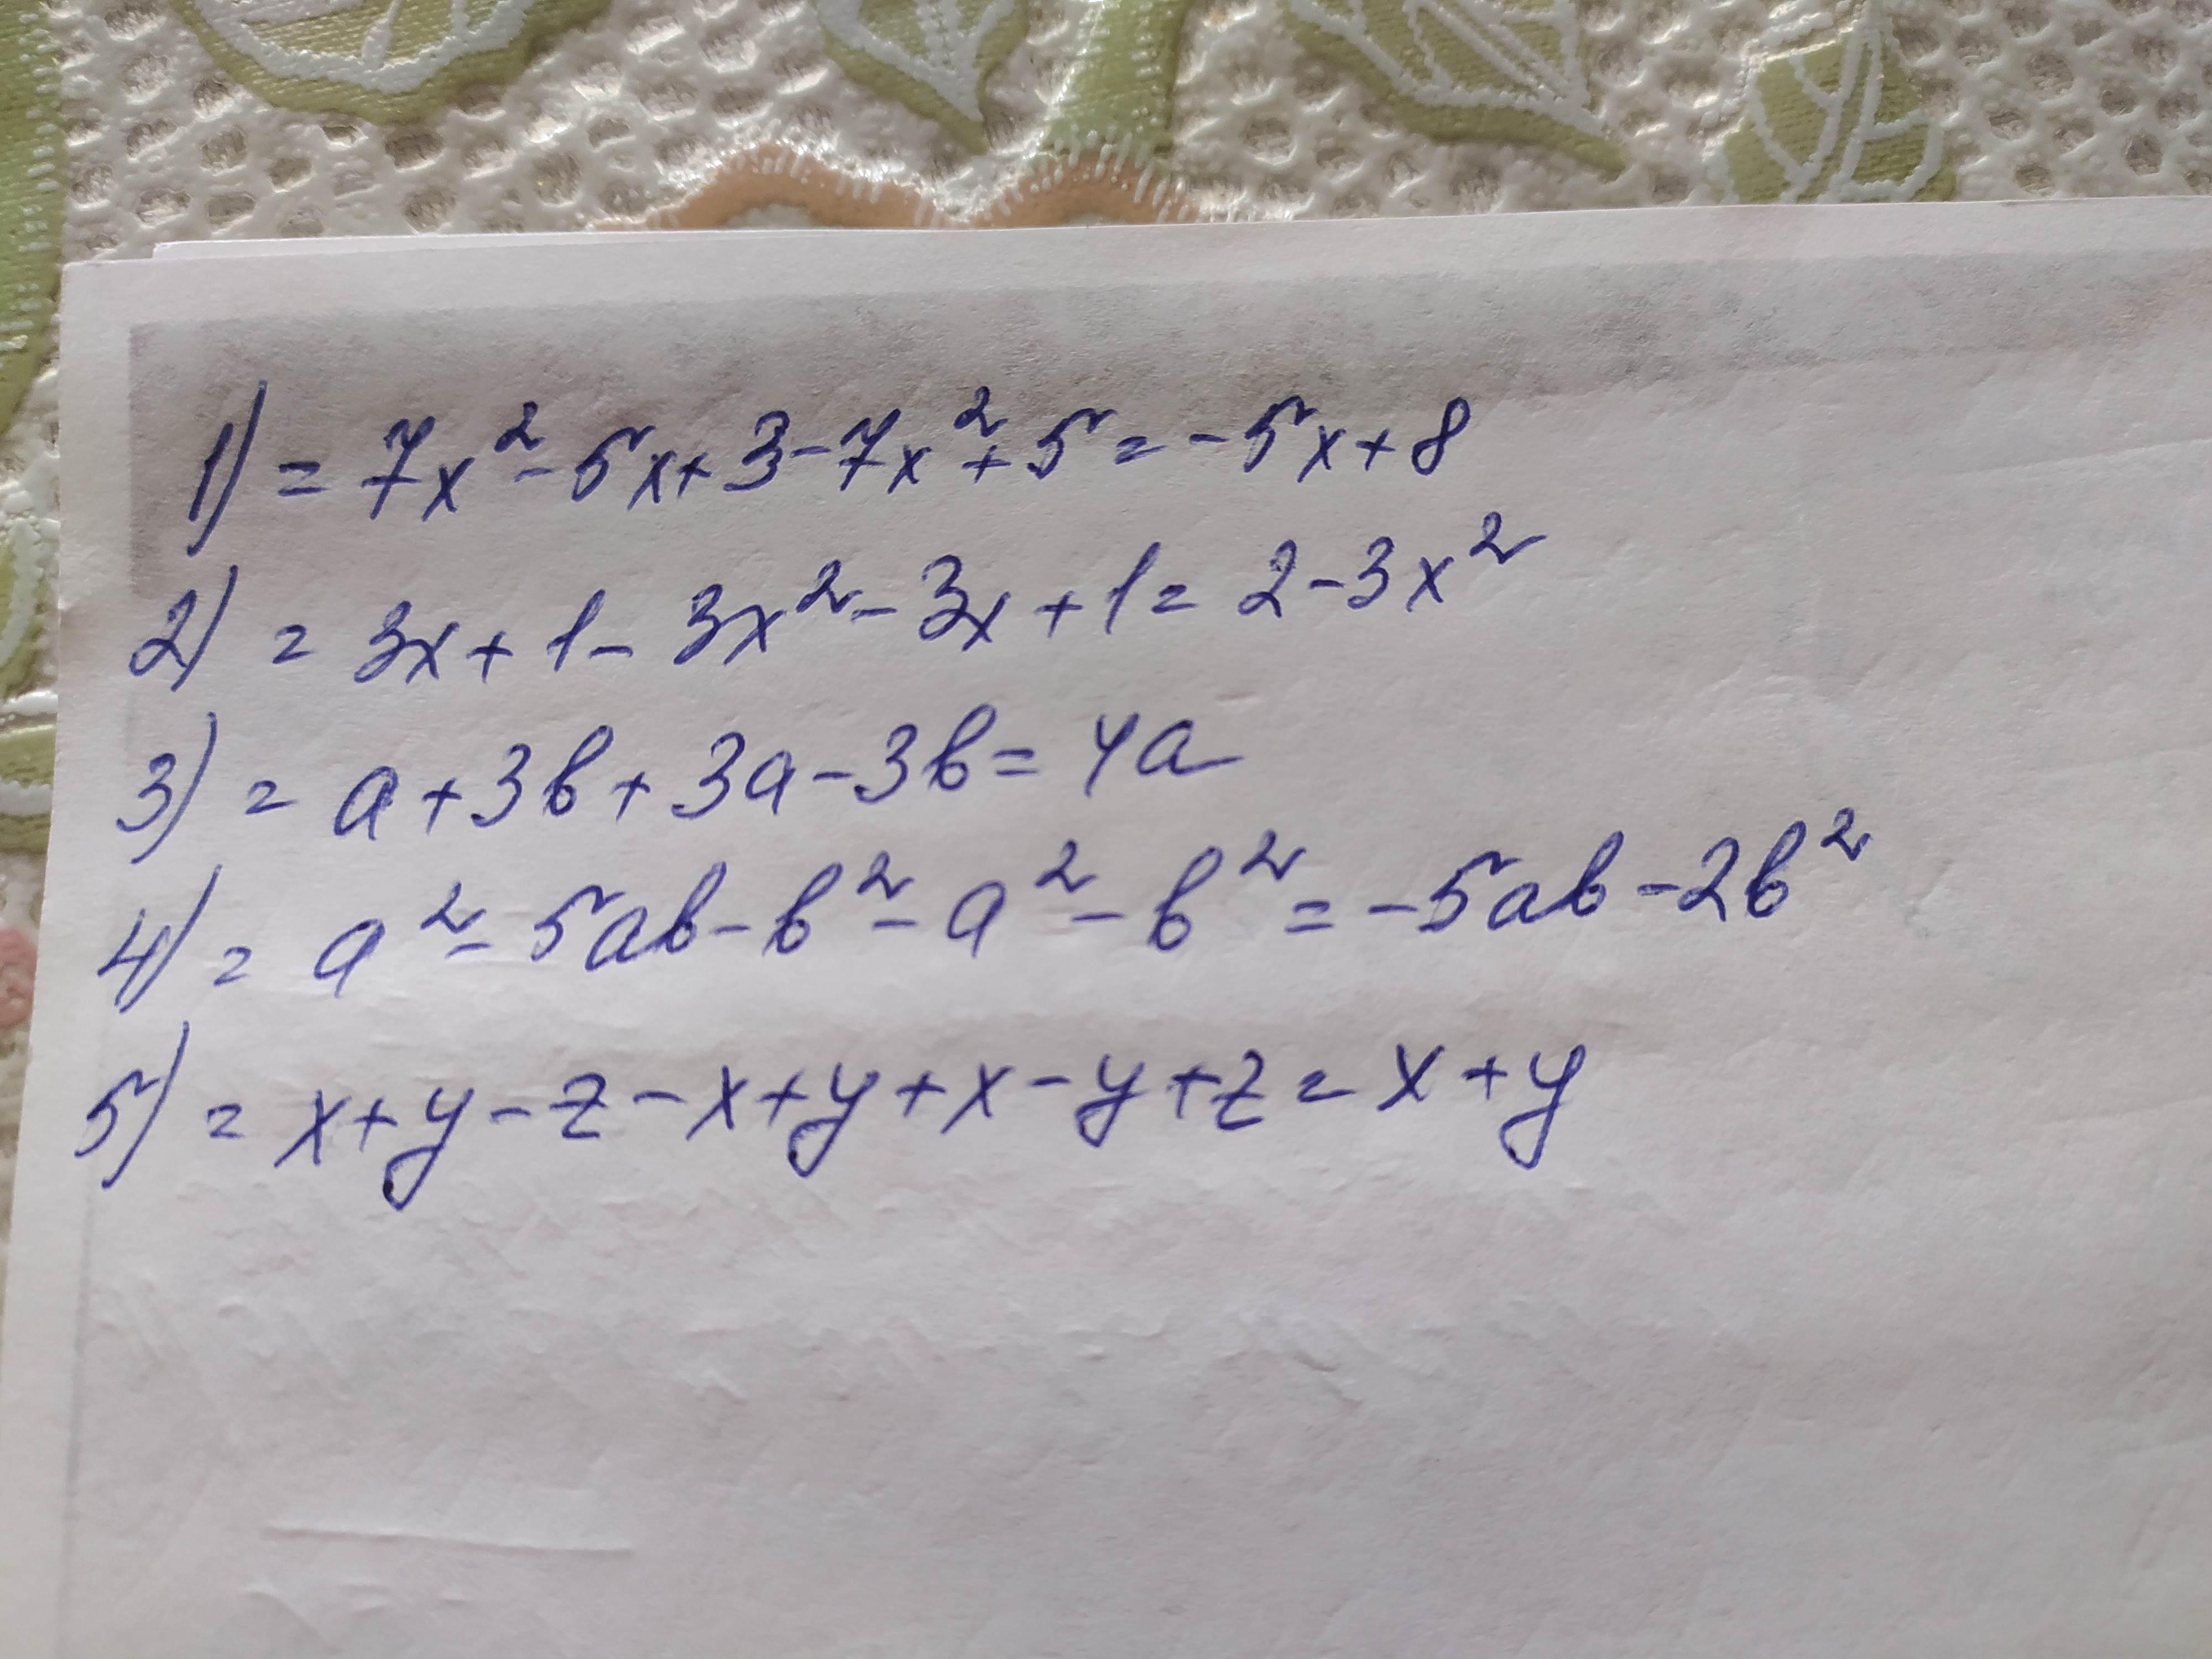 1) = 7x² - 5x + 3 - 7x² + 5 = -5x + 8
2) = 3x + 1 - 3x² - 3x + 1 = 2 - 3x²
3) = a + 3b + 3a - 3b = 4a
4) = a² - 5ab - b² - a² - b² = -5ab - 2b²
5) = x + y - z - x + y + x - y + z = x + y